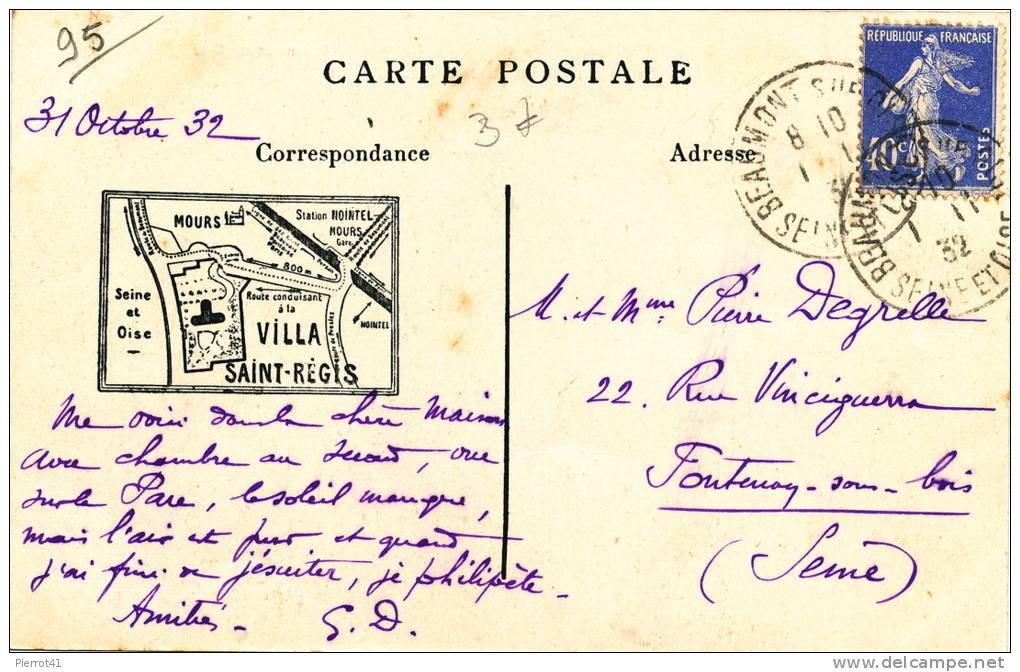 95
CARTE POSTALE
31 Octobre 32
37
Correspondance
Adresse
RÉPUBLIQUE FRANÇAISE
40c
POSTES
BEAUMONT SUR OISE
8 10
1
SEINE ET OISE
BEAUMONT SUR
10
1 11
32
SEINE ET OISE
MOURS
Station NOINTEL
MOURS
Gare
800m
Route conduisant
à la
VILLA
SAINT-RÉGIS
Seine
et
Oise
NOINTEL
Me voici dans la chère Maison
avec chambre au second, vue
sur le Parc, le soleil manque,
mais l'air est pur et quand
j'ai fini de jésuiter, je philipète.
Amitiés. G. D.
M. et Mme Pierre Degrelle
22. Rue Vinciguerra
Fontenay-sous-bois
(Seine)
Pierrot41
http://www.delcampe.net